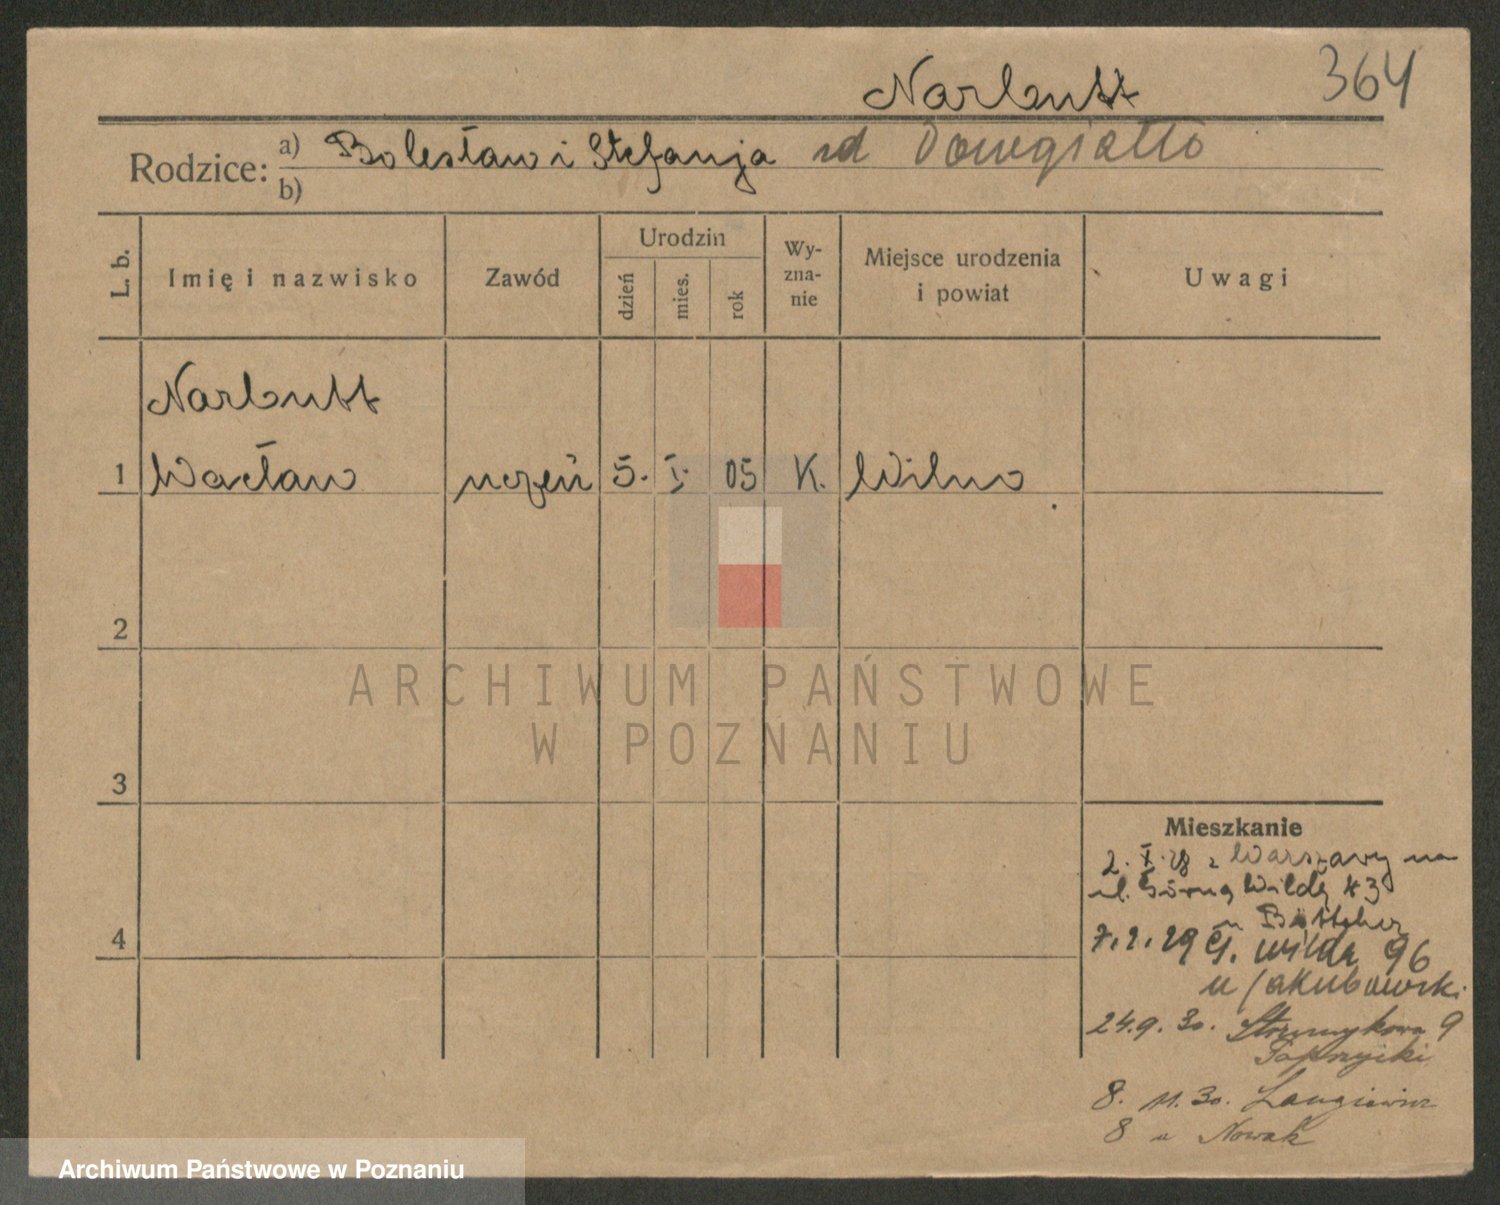 Narbutt 364
Rodzice: a) Bolesław i Stefanja zd Dowgiałło
b)
L. b. Imię i nazwisko Zawód Urodzin dzień mies. rok Wy-zna-nie Miejsce urodzenia i powiat Uwagi
Narbutt
1 Wacław uczeń 5. I. 05 K. Wilno
2
ARCHIWUM PAŃSTWOWE
W POZNANIU
3
Mieszkanie
2. X. 28 z Warszawy na
ul. Górną Wildę 43
u
4
7. 2. 29 G. Wilda 96
u Jakubowski
24.9.30. Strumykowa 9
8. 11. 30. Langiewicz
8 u Nowak
Archiwum Państwowe w Poznaniu